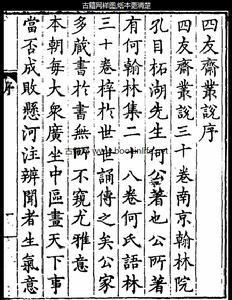 古籍网样图,纸本更清楚
四友齋叢說序
四友齋叢說三十卷南京翰林院
孔目柘湖先生何公著也公所著
有何翰林集二十八卷何氏語林
三十卷梓於世世誦傳之矣公家
多藏書於書無所不窺尤雅意
本朝每大衆廣坐中區畫天下事
當否成敗懸河注辨聞者生氣意
序
一